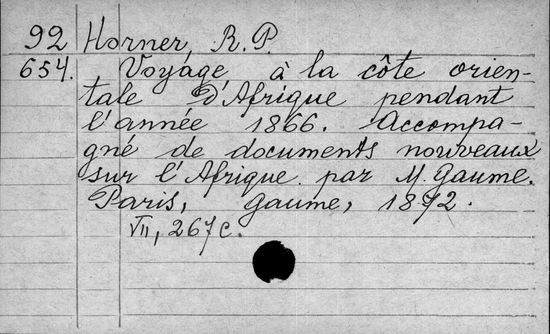 92 Horner, R. P.
654. Voyage à la côte orien-
tale d'Afrique pendant
l'année 1866. Accompa-
gné de documents nouveaux
sur l'Afrique par M. Gaume.
Paris, Gaume, 1872.
VII, 267 c.